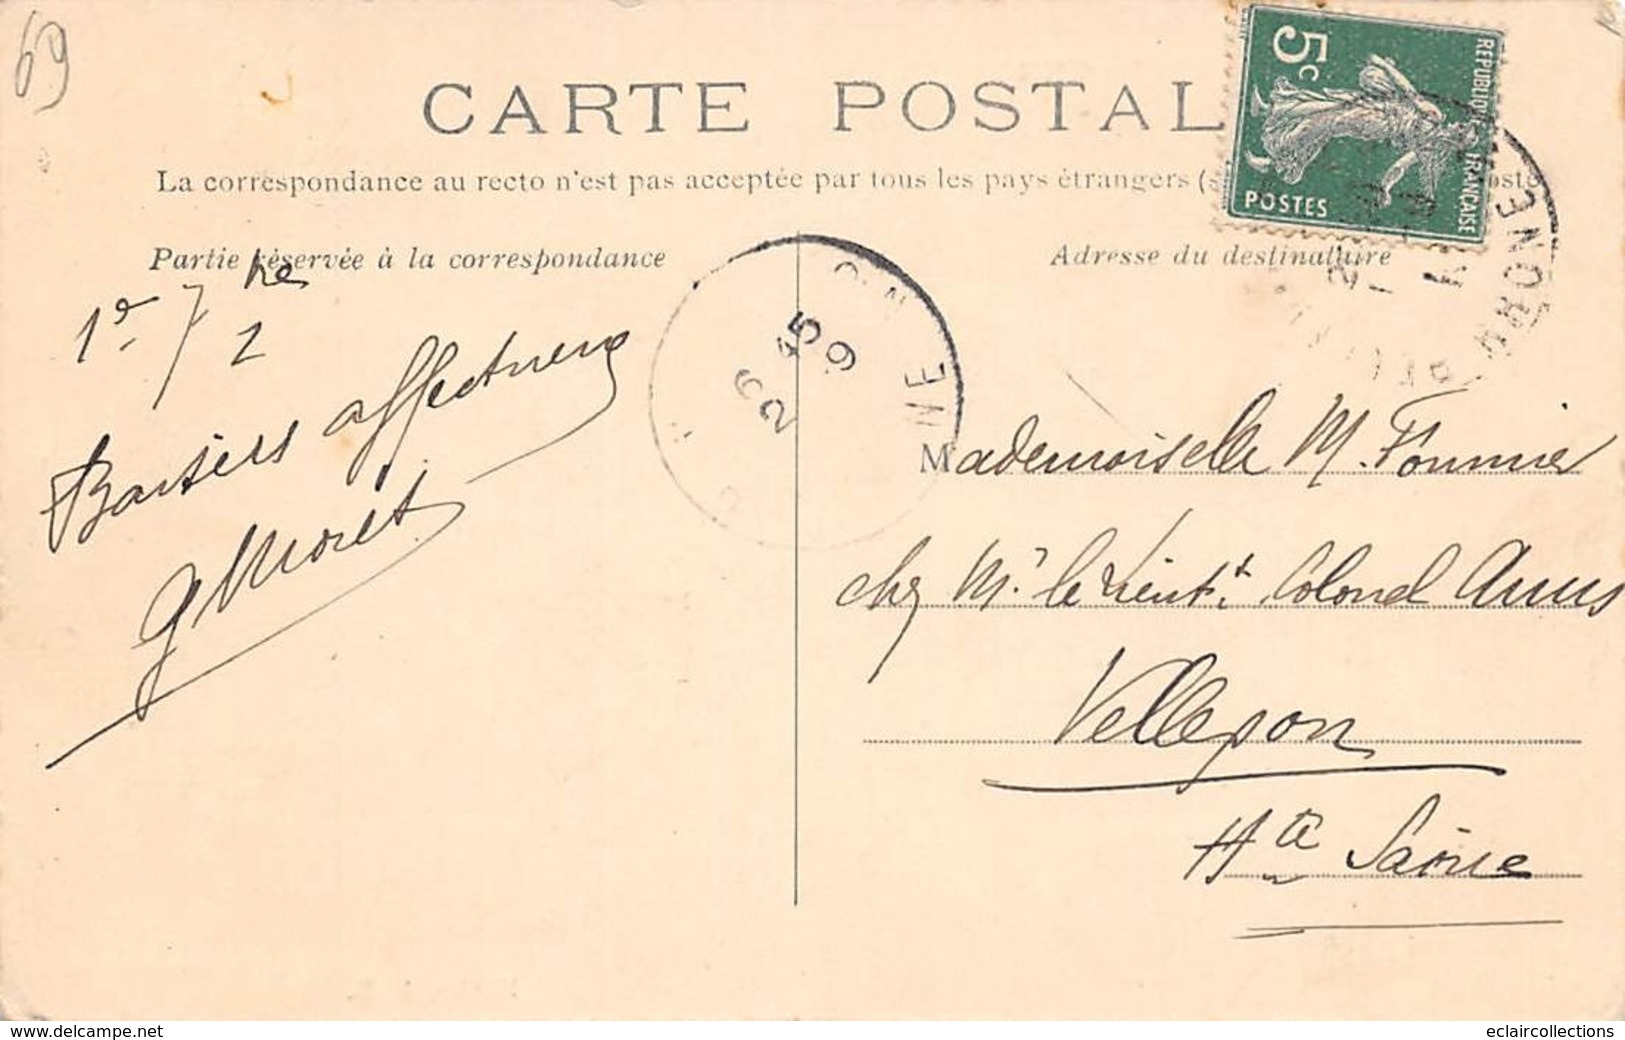 69
CARTE POSTAL
La correspondance au recto n'est pas acceptée par tous les pays étrangers (
Partie réservée à la correspondance
Adresse du destinataire
5c
RÉPUBLIQUE FRANÇAISE
POSTES
RHONE
26 15
9
1er 7bre
Baisers affectueux
G Moret
Mademoiselle M. Fournier
chez Mr le Lieutt Colonel
Vellexon
Hte Saône
www.delcampe.net
eclaircollections